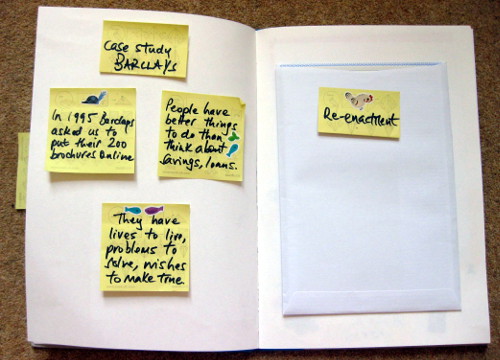 Case study
BARCLAYS
In 1995 Barclays
asked us to
put their 200
brochures online
People have
better things
to do than
think about
savings, loans.
They have
lives to live,
problems to
solve, wishes
to make true.
Re-enactment